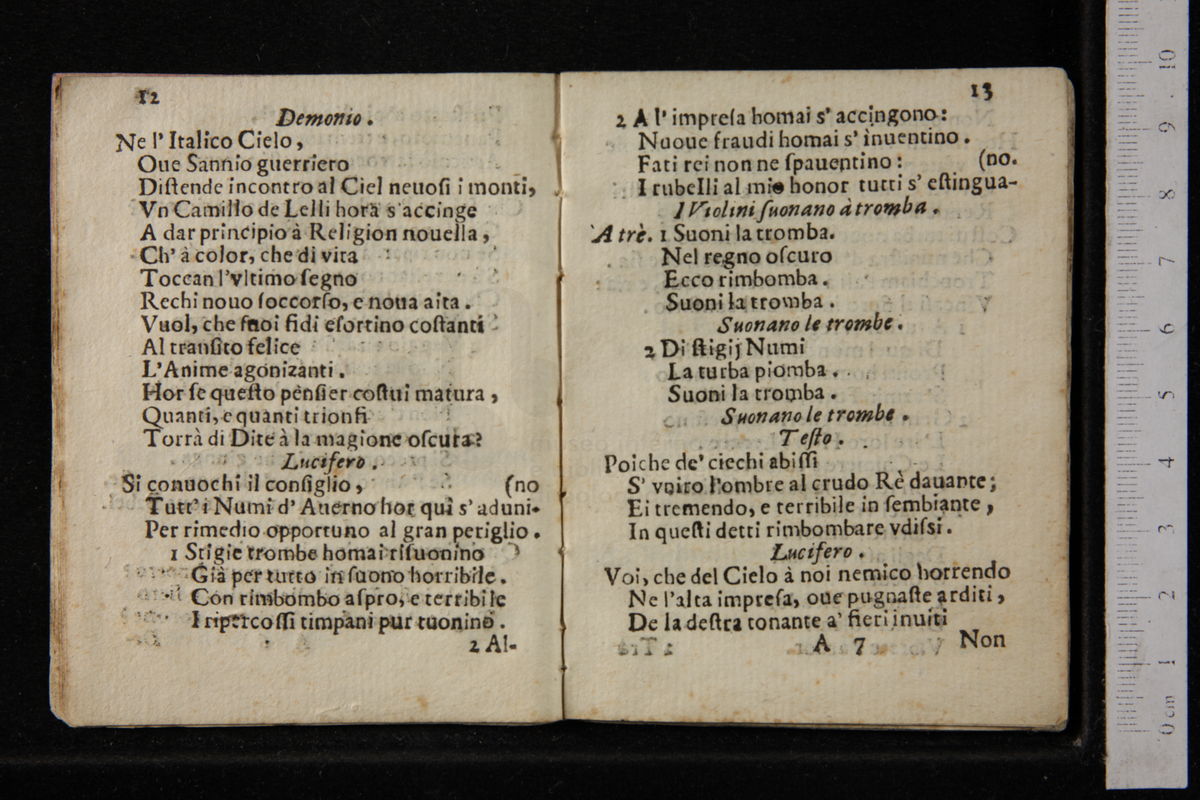 12
Demonio.
Ne l' Italico Cielo,
Oue Sannio guerriero
Diſtende incontro al Ciel neuoſi i monti,
Vn Camillo de Lelli hora s'accinge
A dar principio à Religion nouella,
Ch' à color, che di vita
Toccan l'vltimo ſegno
Rechi nouo ſoccorſo, e noua aita.
Vuol, che ſuoi fidi eſortino coſtanti
Al tranſito felice
L'Anime agonizanti.
Hor ſe queſto penſier coſtui matura,
Quanti, e quanti trionfi
Torrà di Dite à la magione oſcura?
Lucifero.
Si conuochi il conſiglio, (no
Tutt' i Numi d' Auerno hor qui s' aduni-
Per rimedio opportuno al gran periglio.
1 Stigie trombe homai riſuonino
Già per tutto in ſuono horribile.
Con rimbombo aſpro, e terribile
I ripercoſſi timpani pur tuonino.
2 Al-
13
2 A l' impreſa homai s' accingono:
Nuoue fraudi homai s' inuentino.
Fati rei non ne ſpauentino: (no.
I rubelli al mio honor tutti s' eſtingua-
I Violini ſuonano à tromba.
A trè. 1 Suoni la tromba.
Nel regno oſcuro
Ecco rimbomba.
Suoni la tromba.
Suonano le trombe.
2 Di ſtigij Numi
La turba piomba.
Suoni la tromba.
Suonano le trombe.
Teſto.
Poiche de' ciechi abiſſi
S' vniro l'ombre al crudo Rè dauante;
Ei tremendo, e terribile in ſembiante,
In queſti detti rimbombare vdiſsi.
Lucifero.
Voi, che del Cielo à noi nemico horrendo
Ne l'alta impreſa, oue pugnaſte arditi,
De la deſtra tonante a' fieri inuiti
A 7 Non
10
9
8
7
6
5
4
3
2
1
0 cm